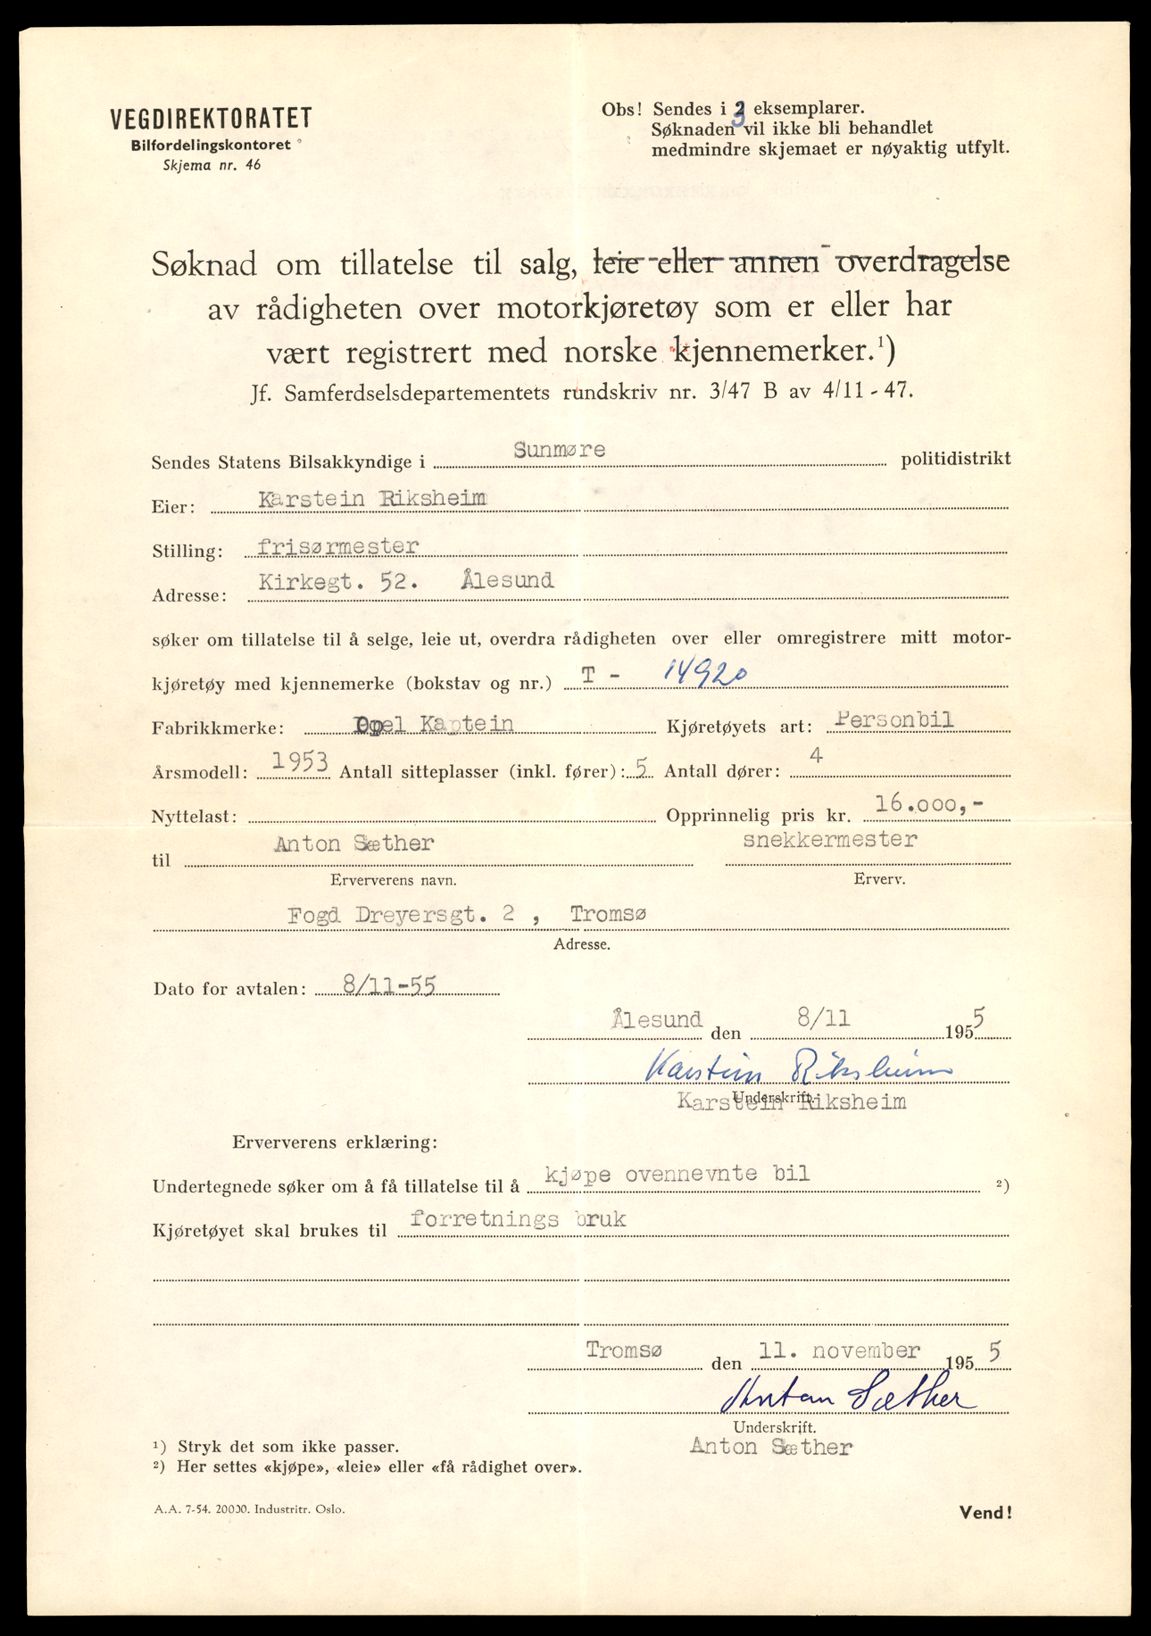 VEGDIREKTORATET
Bilfordelingskontoret
Skjema nr. 46
Obs! Sendes i 3 eksemplarer.
Søknaden vil ikke bli behandlet
medmindre skjemaet er nøyaktig utfylt.
Søknad om tillatelse til salg, leie eller annen overdragelse
av rådigheten over motorkjøretøy som er eller har
vært registrert med norske kjennemerker.¹)
Jf. Samferdselsdepartementets rundskriv nr. 3/47 B av 4/11 - 47.
Sendes Statens Bilsakkyndige i Sunmøre politidistrikt
Eier: Karstein Riksheim
Stilling: frisørmester
Adresse: Kirkegt. 52. Ålesund
søker om tillatelse til å selge, leie ut, overdra rådigheten over eller omregistrere mitt motor-
kjøretøy med kjennemerke (bokstav og nr.) T - 14920
Fabrikkmerke: Opel Kaptein Kjøretøyets art: Personbil
Årsmodell: 1953 Antall sitteplasser (inkl. fører): 5 Antall dører: 4
Nyttelast: Opprinnelig pris kr. 16.000,-
til Anton Sæther snekkermester
Erververens navn. Erverv.
Fogd Dreyersgt. 2 , Tromsø
Adresse.
Dato for avtalen: 8/11-55
Ålesund den 8/11 1955
Karstein Riksheim
Underskrift.
Karstein Riksheim
Erververens erklæring:
Undertegnede søker om å få tillatelse til å kjøpe ovennevnte bil ²)
Kjøretøyet skal brukes til forretnings bruk
Tromsø den 11. november 1955
Anton Sæther
Underskrift.
Anton Sæther
¹) Stryk det som ikke passer.
²) Her settes «kjøpe», «leie» eller «få rådighet over».
A.A. 7-54. 20000. Industritr. Oslo.
Vend!